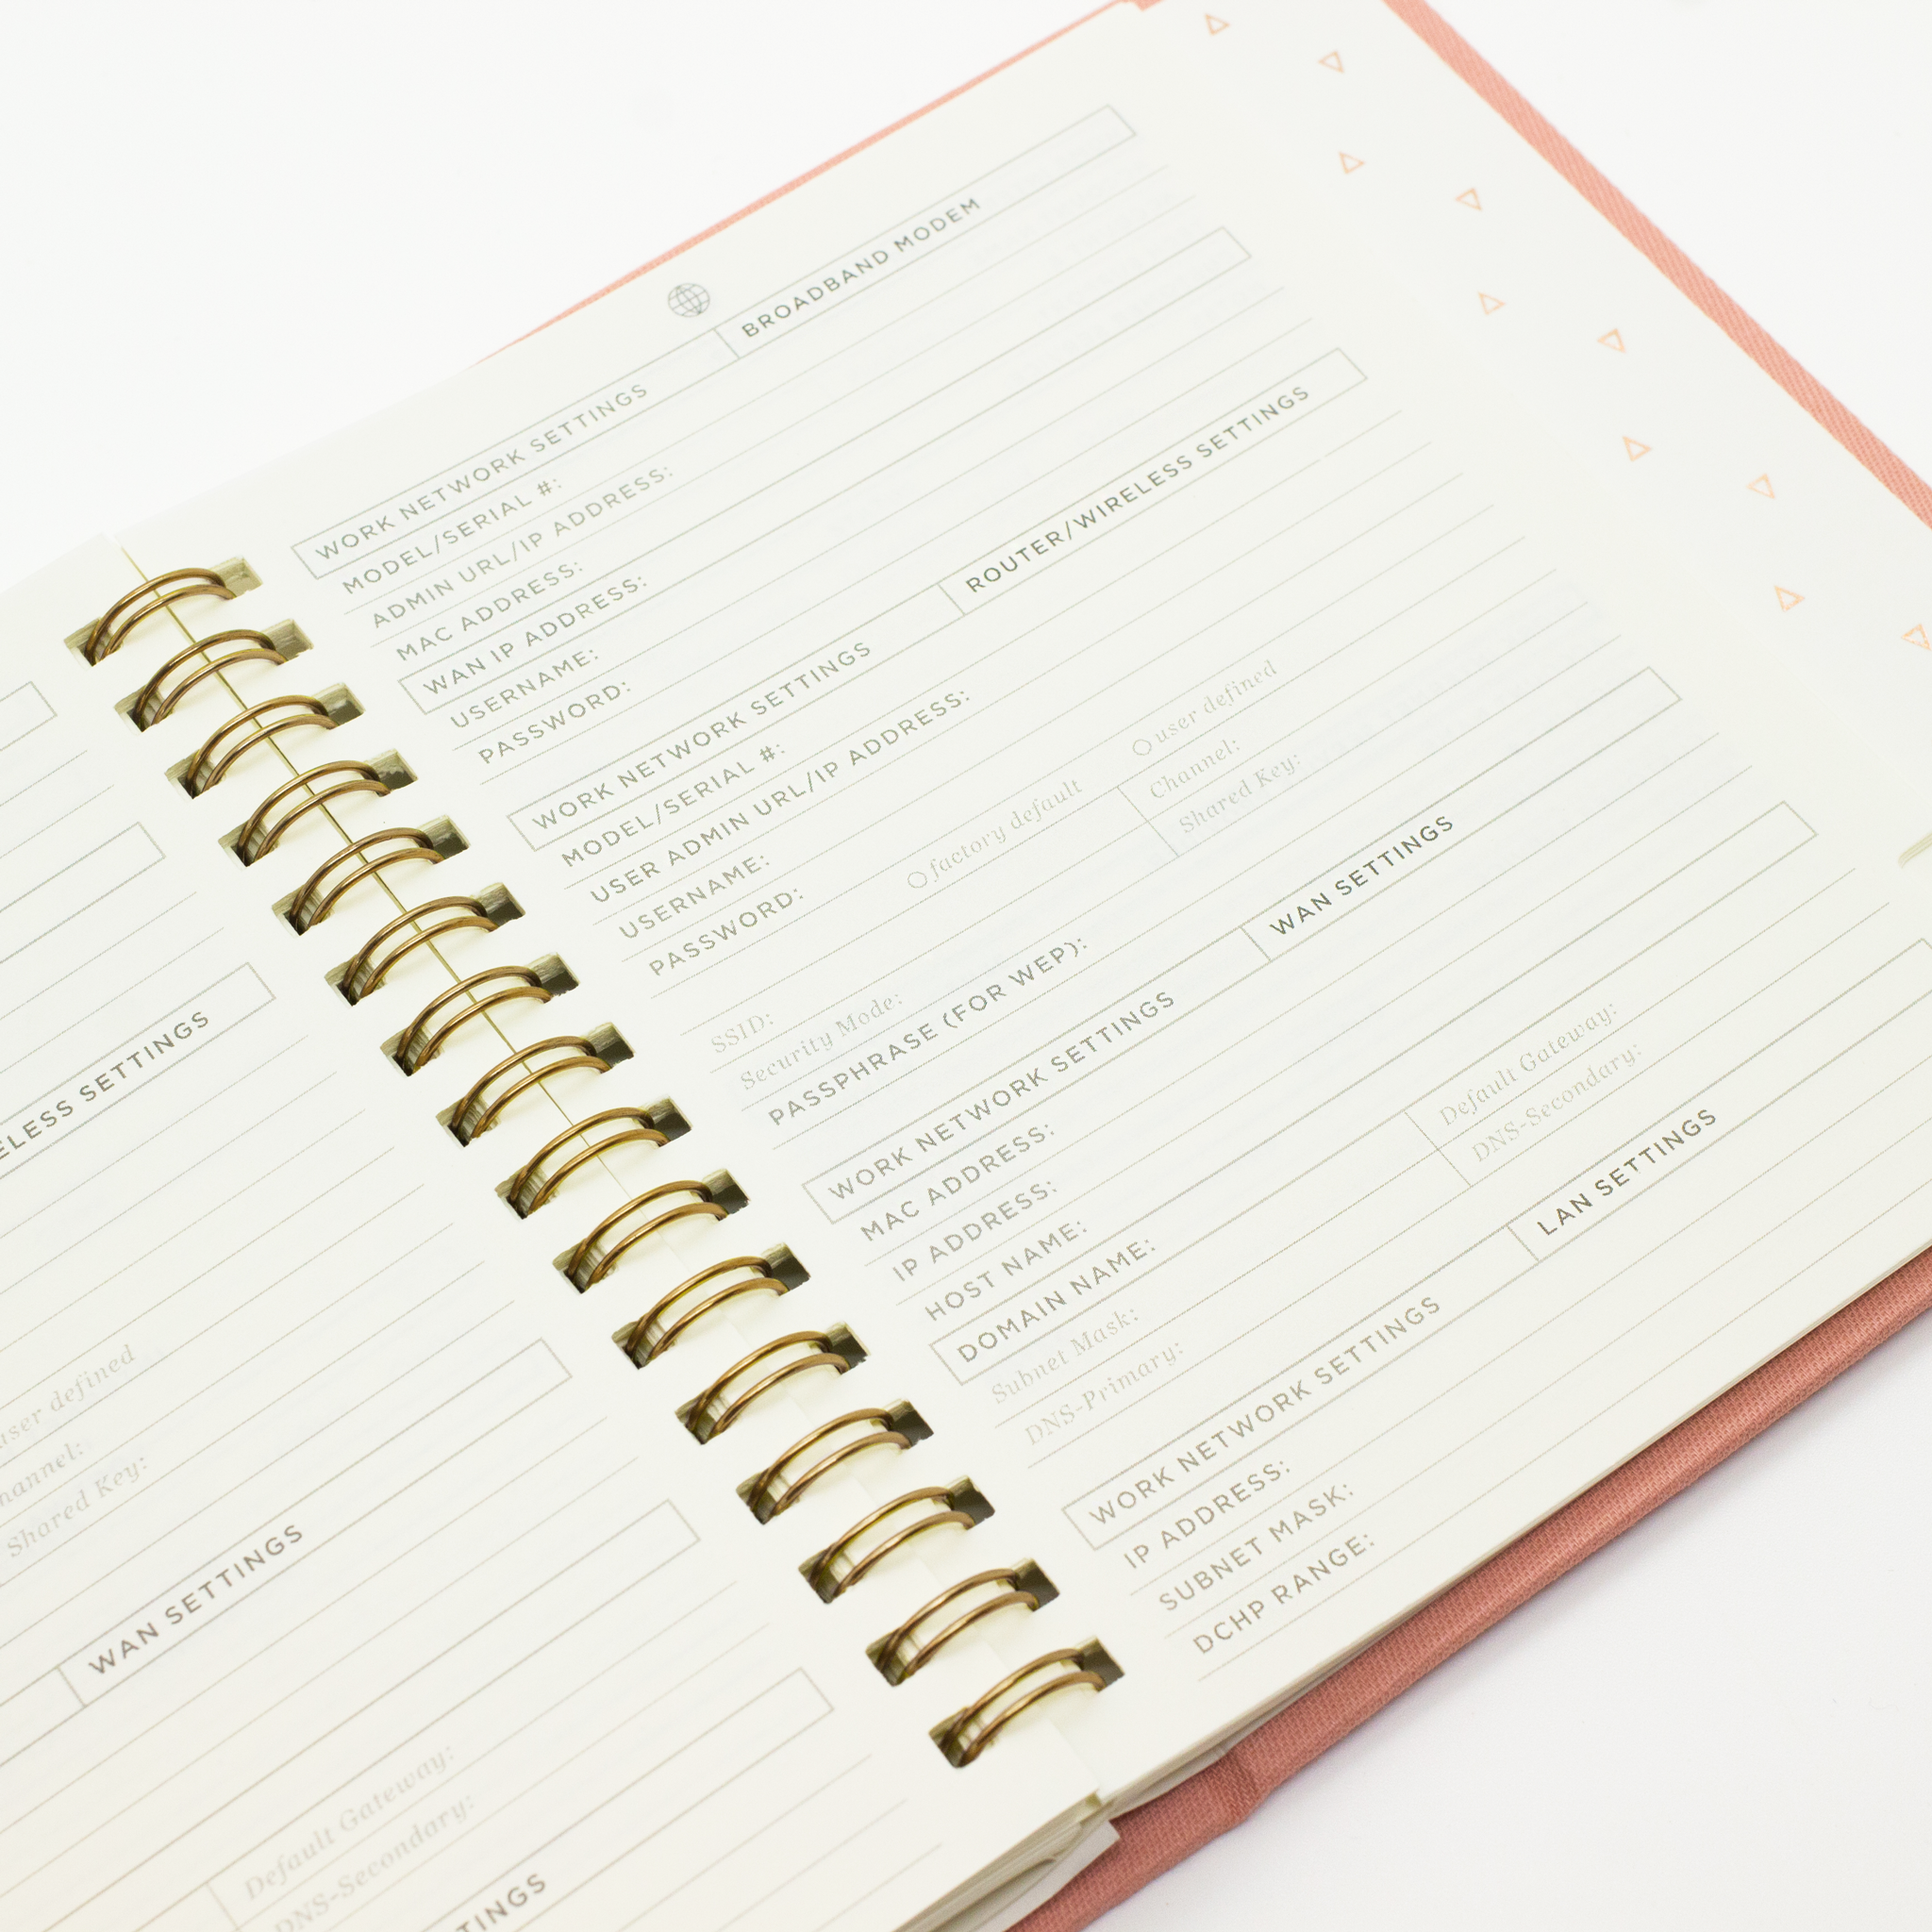 ELESS SETTINGS
user defined
hannel:
Shared Key:
WAN SETTINGS
Default Gateway:
DNS-Secondary:
TINGS
WORK NETWORK SETTINGS BROADBAND MODEM
MODEL/SERIAL #:
ADMIN URL/IP ADDRESS:
MAC ADDRESS:
WAN IP ADDRESS:
USERNAME:
PASSWORD:
WORK NETWORK SETTINGS ROUTER/WIRELESS SETTINGS
MODEL/SERIAL #:
USER ADMIN URL/IP ADDRESS:
USERNAME:
PASSWORD:
factory default user defined
SSID: Channel:
Security Mode: Shared Key:
PASSPHRASE (FOR WEP):
WORK NETWORK SETTINGS WAN SETTINGS
MAC ADDRESS:
IP ADDRESS:
HOST NAME:
DOMAIN NAME:
Subnet Mask: Default Gateway:
DNS-Primary: DNS-Secondary:
WORK NETWORK SETTINGS LAN SETTINGS
IP ADDRESS:
SUBNET MASK:
DCHP RANGE: